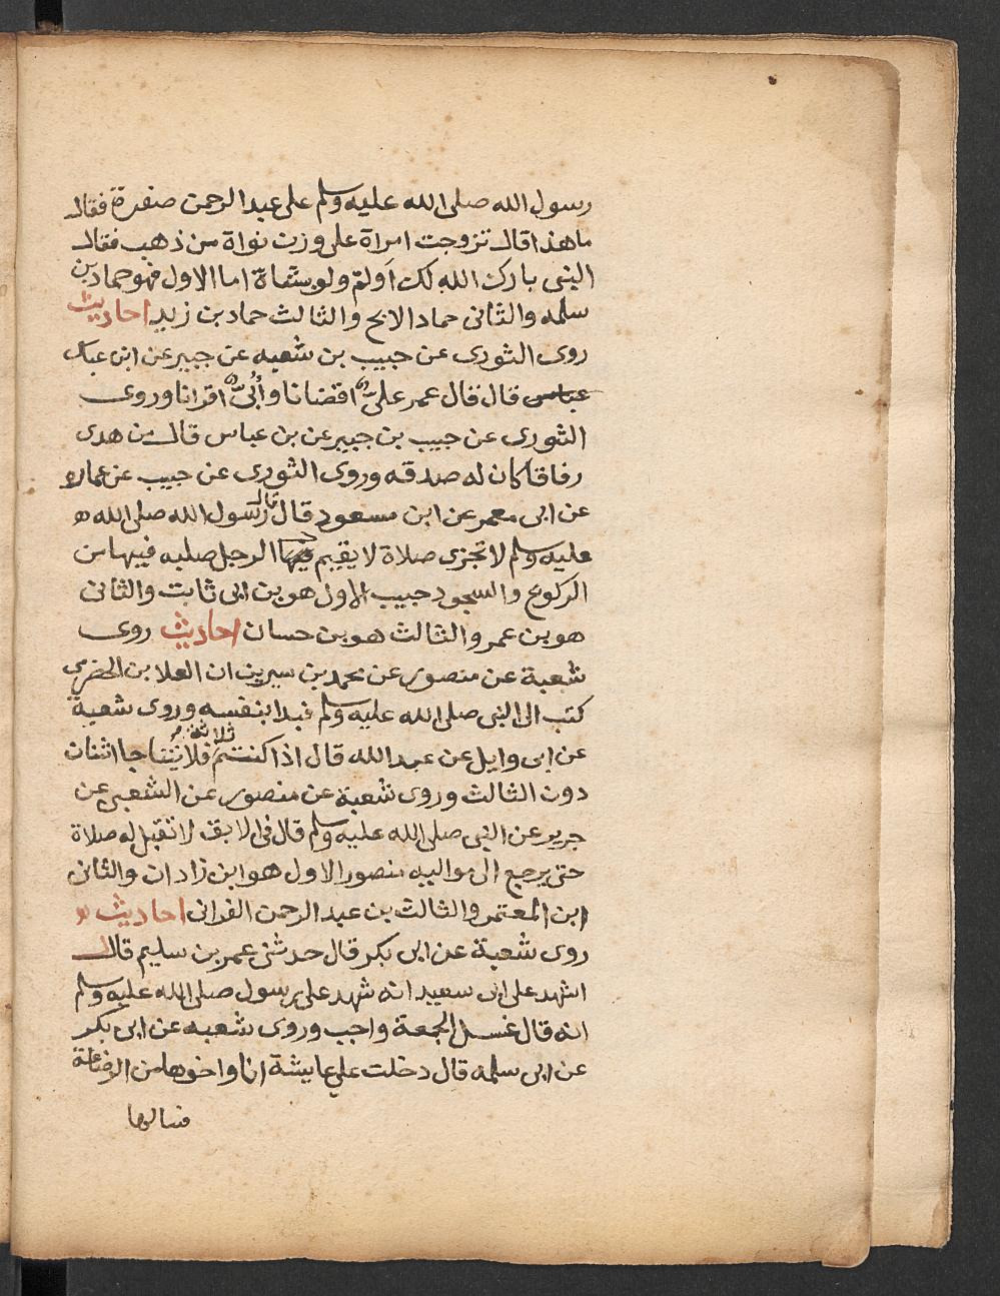 رسول الله صلى الله عليه وسلم على عبد الرحمن صفرة فقال
ما هذا قال تزوجت امراة على وزن نواة من ذهب فقال
النبى بارك الله لك أولم ولو بشاة اما الاول فهو حماد بن
سلمه والثانى حماد الابح والثالث حماد بن زيد احاديث
روى الثورى عن حبيب بن شعبه عن جبير عن ابن عباس
عباس قال قال عمر على اقضانا وأبىّ اقرانا وروى
الثورى عن حبيب بن جبير عن بن عباس قال من هدى
رفاقا كان له صدقه وروى الثورى عن حبيب عن عماره
عن ابى معمر عن ابن مسعود قال قال رسول الله صلى الله ه
عليه وسلم لا تجزى صلاة لا يقيم الرجل صلبه فيها من
الركوع والسجود حبيب الاول هو بن ابى ثابت والثانى
هو بن عمر والثالث هو بن حسان احاديث روى
شعبة عن منصور عن محمد بن سيرين ان العلا بن الحضرمى
كتب الى النبى صلى الله عليه وسلم فبدا بنفسه وروى شعبة
عن ابى وايل عن عبد الله قال اذا كنتم ثلاثة فلا يتناجا اثنان
دون الثالث وروى شعبة عن منصور عن الشعبى عن
جرير عن النبى صلى الله عليه وسلم قال فى الابق لا تقبل له صلاة
حتى يرجع الى مواليه منصور الاول هو ابن زادان والثانى
ابن المعتمر والثالث بن عبد الرحمن الغدانى احاديث
روى شعبة عن ابى بكر قال حدثنى عمر بن سليم قال
اشهد على ابى سعيد انه شهد على رسول صلى الله عليه وسلم
انه قال غسل الجمعة واجب وروى شعبه عن ابى بكر
عن ابى سلمه قال دخلت على عايشة انا واخوها من الرضاعة
فسالها